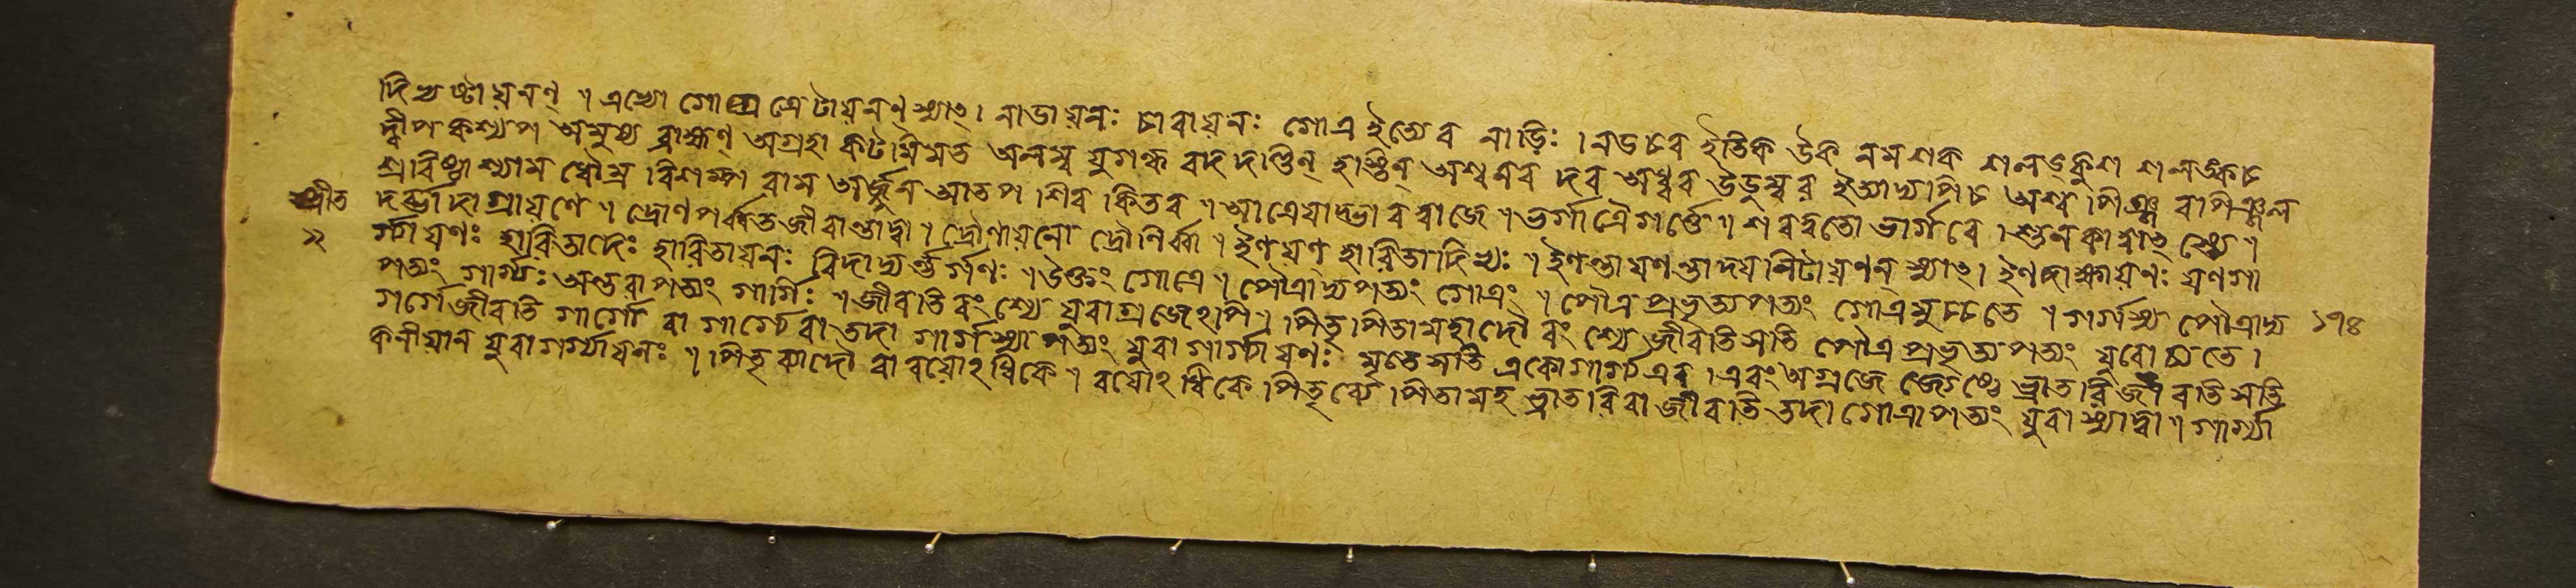 দিখণ্টায়নণ্ । এখো গোত্রে টায়নণ্ স্যাৎ । নাডায়নঃ চারায়নঃ গোত্র ইত্যেব নাড়িঃ । নড চর ইতিক উক নমশক শলঙ্কুশ শলঙ্কচ
দ্বীপ কশ্যপ অমুষ্য ব্রাহ্মণ অগ্রহা কট মিমত অলম্ব যুগন্ধ বদ দণ্ডিন্ হাস্তিন্ অশ্বনব দব অধ্বর উডুম্বর ইত্যাদ্যপিচ অশ্ব পিঞ্জ বাপিঞ্জল
শ্রবিষ্ঠা শ্যাম ধৌম্র বিশম্প রাম অর্জ্জুন আতপ শিব কিতব । আত্রেয়াদ্ভার বাজে । ভর্গাত্রৈগর্ত্তে । শরদ্বতো ভার্গবে । শুনকাদ্বাৎ স্যে ।
প্রীত দর্ভাদাগ্রায়ণে । দ্রোণ পর্ব্বত জীবান্তাদ্বা । দ্রৌণায়নো দ্রৌণির্ব্বা । ইণ যণ্ হারিতাদিভ্যঃ । ইণন্তাযণন্তাদযনিটায়ণন্ স্যাৎ । ইণ দাক্ষায়ণঃ যণ গা
র্গ্যায়ণঃ হারিতাদেঃ হারিতায়নঃ বিদাদ্যর্ন্ত গণঃ । উক্তং গোত্রে । পৌত্রাদ্যপত্যং গোত্রং । পৌত্র প্রভৃত্যপত্যং গোত্রমুচ্চতে । গর্গস্য পৌত্রাদ্য ১৭৪
পত্যং গার্গ্যঃ অন্তরাপত্যং গার্গিঃ । জীবতি বংশ্যে যুবাগ্রজেঽপি । পিতৃ পিতামহাদৌ বংশ্যে জীবতি সতি পৌত্র প্রভৃত্যপত্যং যুবোচ্যতে ।
গর্গে জীবতি গার্গৌ বা গার্গ্যে বা তদা গার্গস্যাপত্যং যুবা গার্গ্যায়ণঃ মৃতে সতি একো গার্গ্য এব । এবং অগ্রজে জ্যেষ্ঠে ভ্রাতরি জীবতি সতি
কনীয়ান যুবা গর্গ্যায়নঃ । পিতৃব্যাদৌ বা বয়োঽধিকে । বয়োঽধিকে পিতৃব্যে পিতামহ ভ্রাতরি বা জীবতি তদা গোত্রাপত্যং যুবা স্যাদ্বা । গার্গ্যা